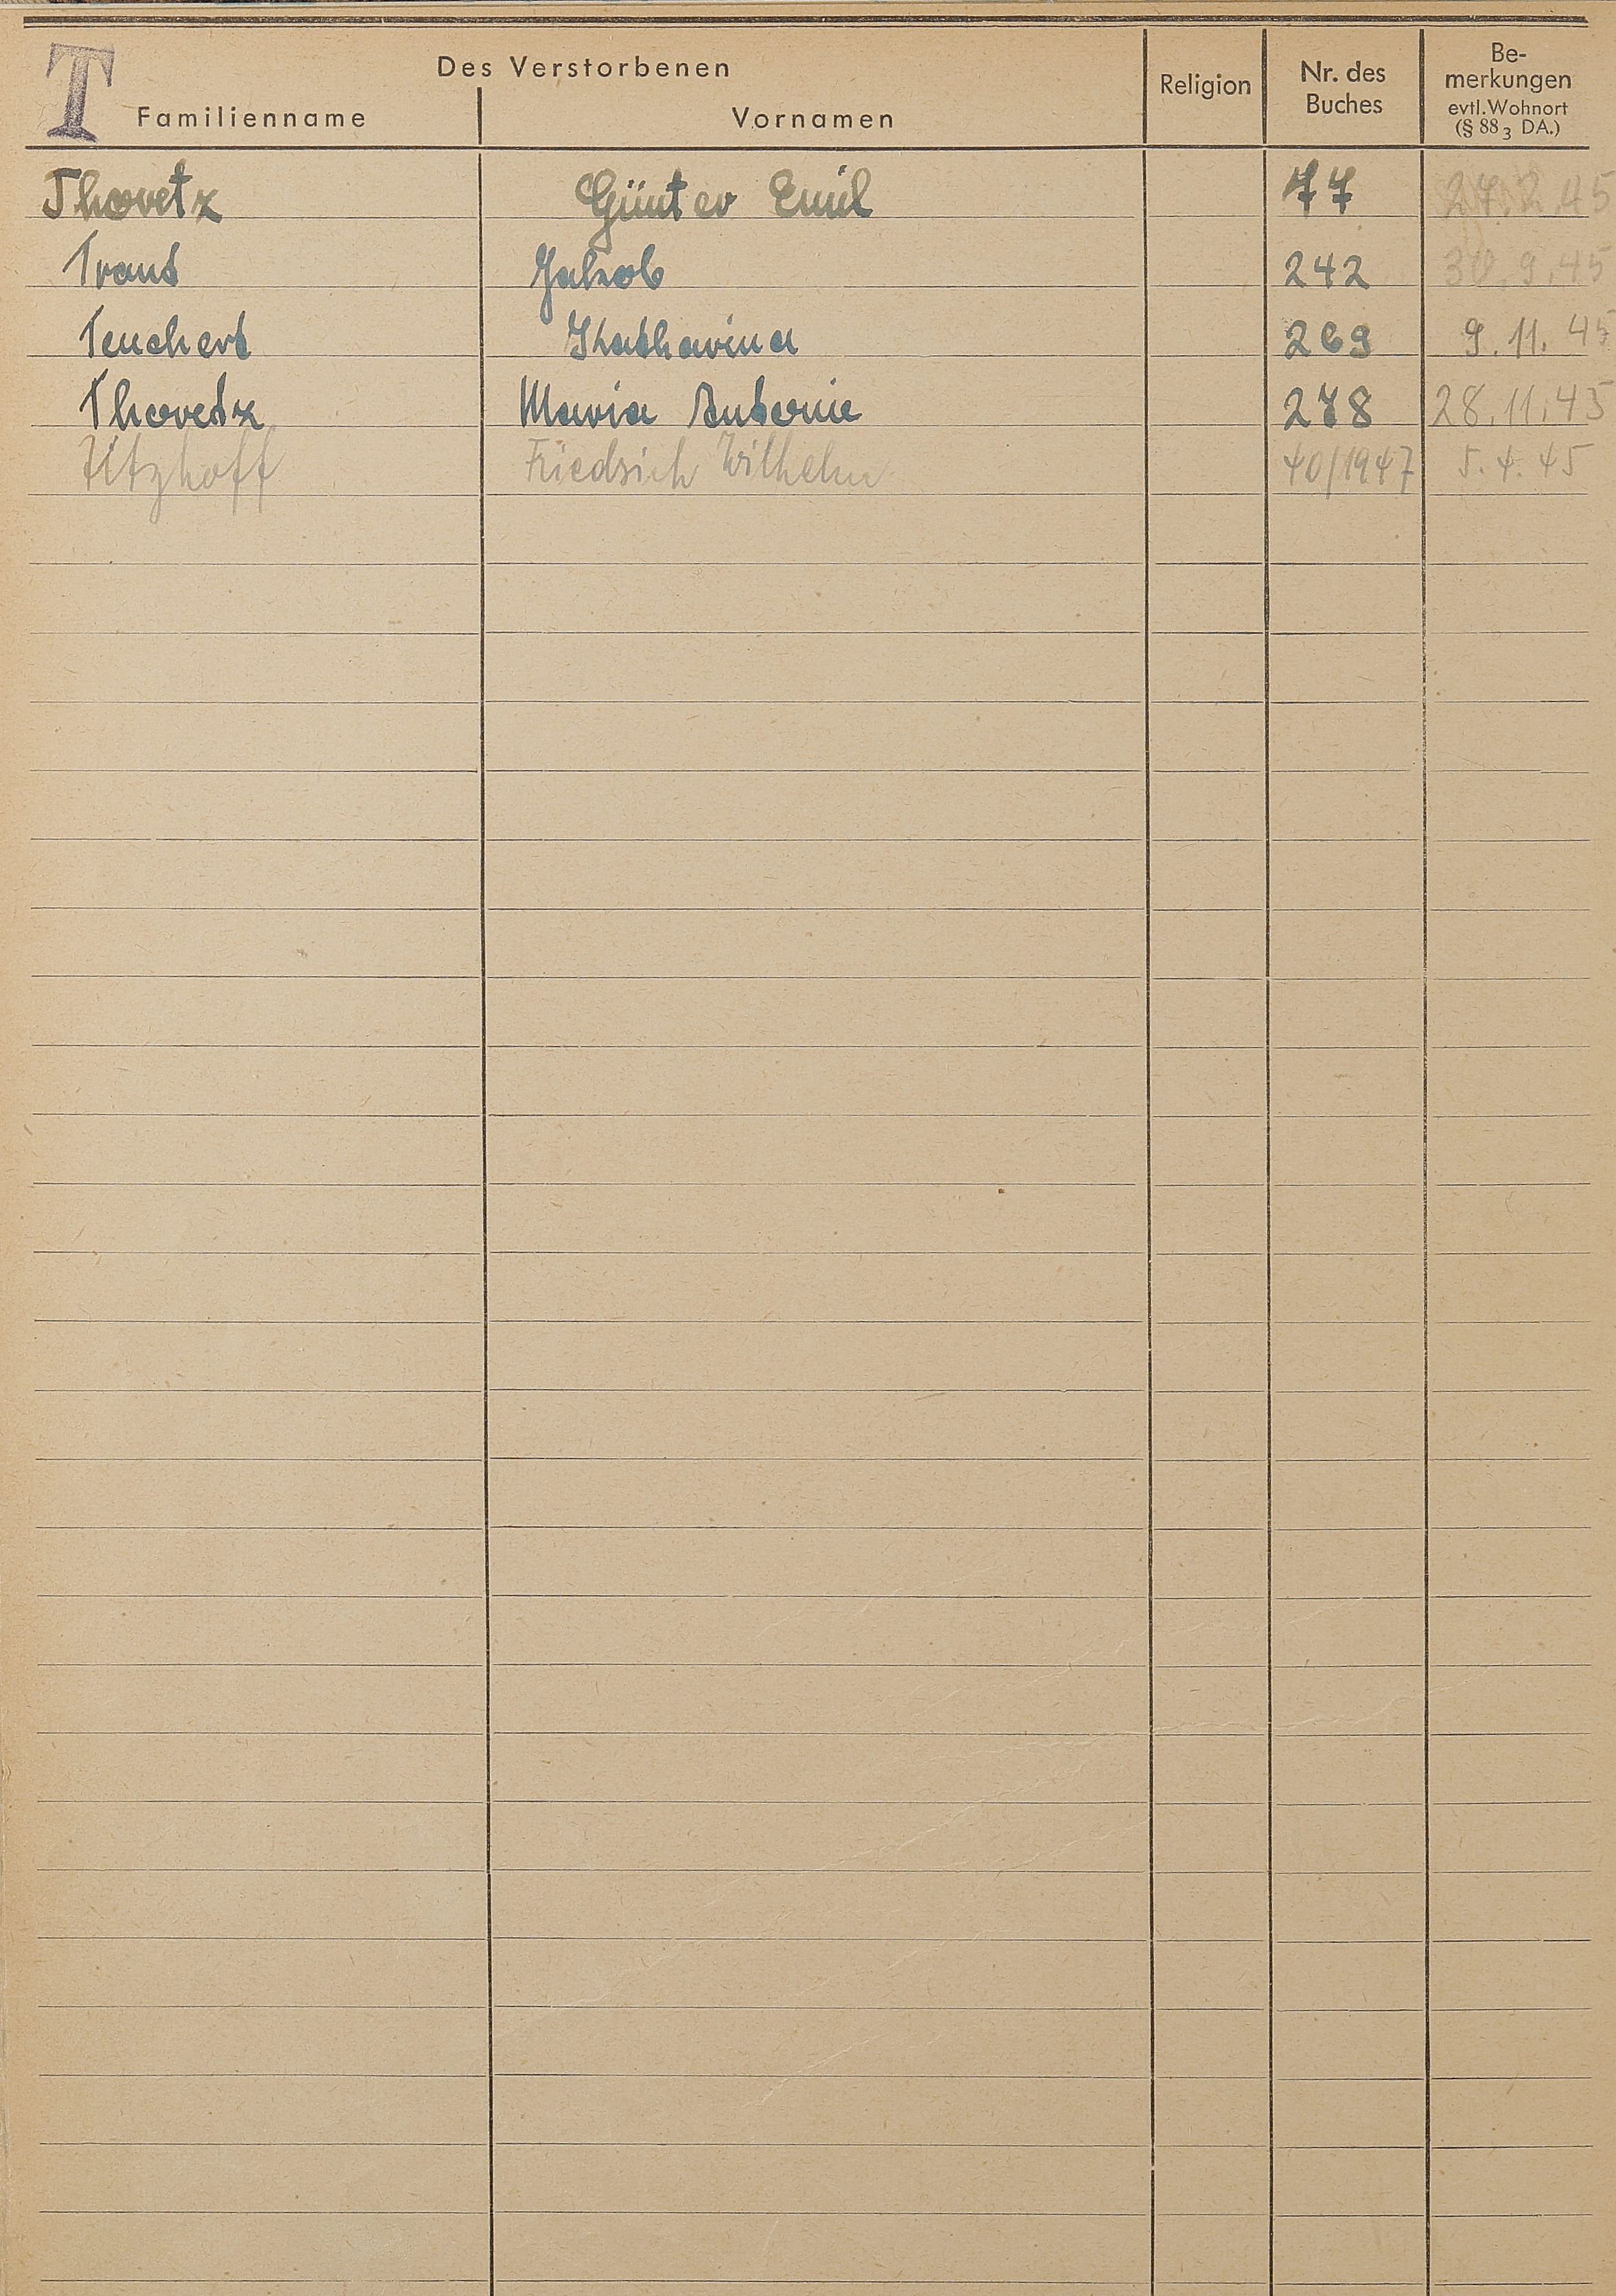 T
Des Verstorbenen
Familienname Vornamen Religion Nr. des Buches Be-merkungen evtl. Wohnort (§ 88 3 DA.)
Thoretz Günter Emil 77 27.2.45
Traut Jakob 242 30.9.45
Teuchert Katharina 269 9.11.45
Thoretz Maria Antonie 278 28.11.45
Titzhoff Friedrich Wilhelm 40/1947 5.4.45